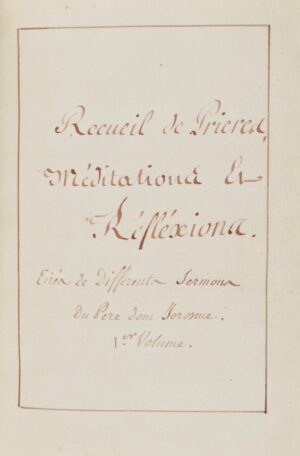 Recueil de Prieres,
Méditations Et
Réfléxions.
Tirés de Differents Sermons
Du Pere dom Jerosme.
1er Volume.